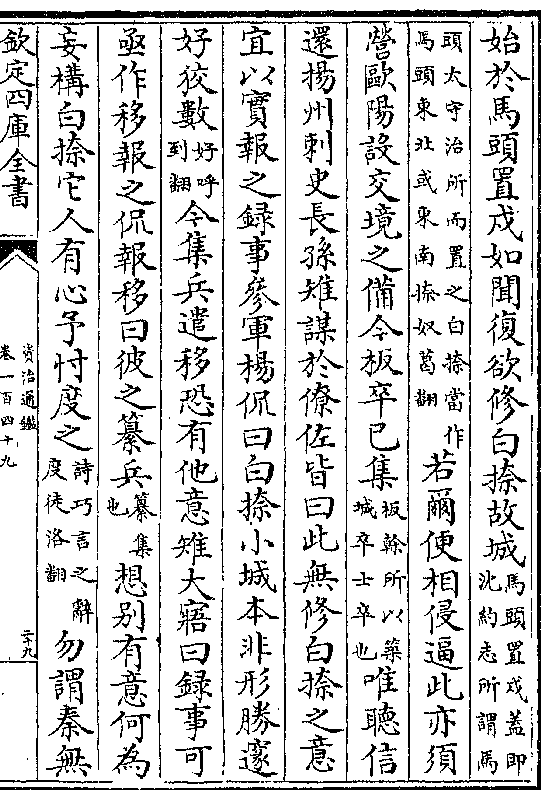 始於馬頭置戍如聞復欲修白捺故城馬頭置戍蓋即沈約志所謂馬
頭太守治所而置之白捺當作馬頭東北或東南捺奴葛翻若爾便相侵逼此亦須
營歐陽設交境之備今板卒已集板榦所以築城卒士卒也唯聽信
還揚州刺史長孫稚謀於僚佐皆曰此無修白捺之意
宜以實報之録事參軍楊侃曰白捺小城本非形勝邃
好狡數好呼到翻今集兵遣移恐有他意稚大寤曰録事可
亟作移報之侃報移曰彼之纂兵纂集也想别有意何為
妄構白捺它人有心予忖度之詩巧言之辭度徒洛翻勿謂秦無
欽定四庫全書
資治通鑑
卷一百四十九
二十九